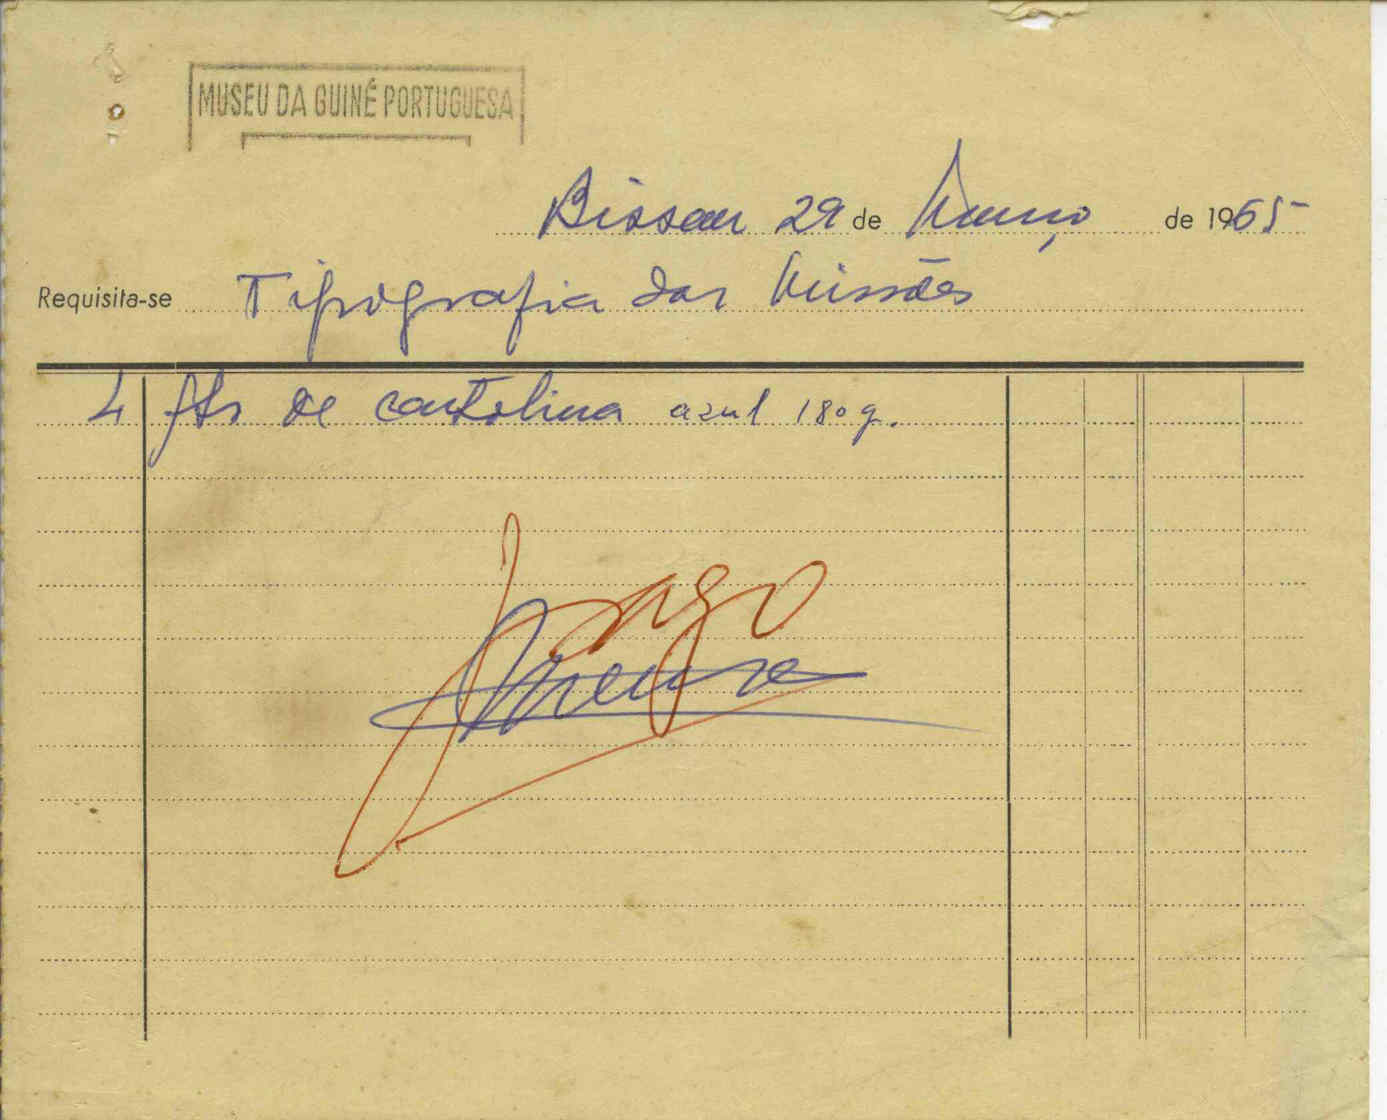 MUSEU DA GUINÉ PORTUGUESA
Bissau 29 de Março de 1965
Requisita-se Tipografia das Missões
4 fls de cartolina azul 180 g.
Pago